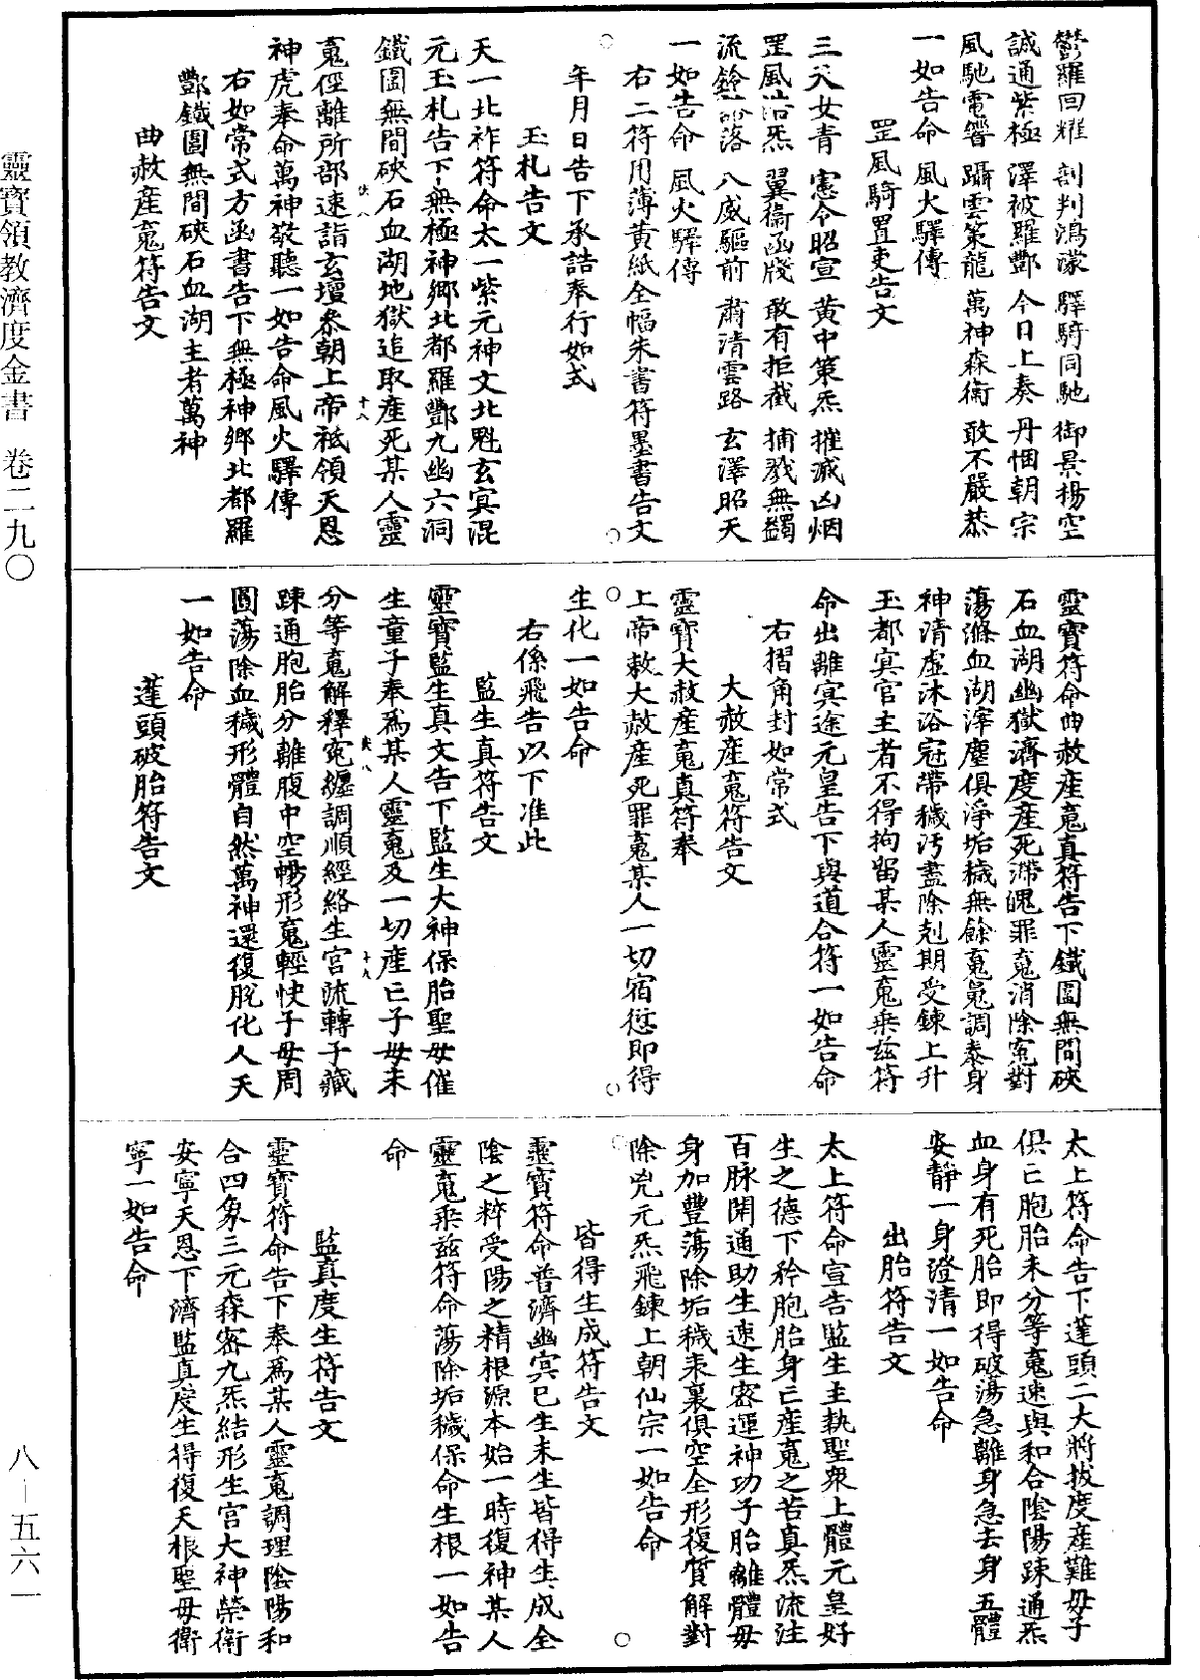 靈寶領教濟度金書 卷二九〇
八—五六一
鬱羅回耀 剖判鴻濛 驛騎同馳 御景揚空
誠通紫極 澤被羅酆 今日上奏 丹悃朝宗
風馳電響 躡雲策龍 萬神森衛 敢不嚴恭
一如告命 風火驛傳
罡風騎置吏告文
三天女青 憲令昭宣 黃中策炁 摧滅凶烟
罡風浩炁 翼衛函牋 敢有拒截 捕戮無蠲
流鈴 落 八威驅前 肅清雲路 玄澤昭天
一如告命 風火驛傳
右二符用薄黃紙全幅朱書符墨書告文
年月日告下承誥奉行如式
玉札告文
天一北祚符命太一紫元神文北魁玄冥混
元玉札告下無極神鄉北都羅酆九幽六洞
鐵圍無間硤石血湖地獄追取產死某人靈
䰟徑離所部速詣玄壇叅朝上帝祗領天恩
神虎奉命萬神敬聽一如告命風火驛傳
右如常式方函書告下無極神鄉北都羅
酆鐵圍無間硤石血湖主者萬神
曲赦產䰟符告文
靈寶符命曲赦產䰟真符告下鐵圍無間硤
石血湖幽獄濟度產死滯魄罪䰟消除寃對
蕩滌血湖滓塵俱淨垢穢無餘䰟䰟調泰身
神清虛沐浴冠帶穢污盡除剋期受鍊上升
玉都冥官主者不得拘留某人靈䰟乘茲符
命出離冥途元皇告下與道合符一如告命
右摺角封如常式
大赦產䰟符告文
靈寶大赦產䰟真符奉
上帝敕大赦產死罪䰟某人一切宿愆即得
生化一如告命
右係飛告以下准此
監生真符告文
靈寶監生真文告下監生大神保胎聖母催
生童子奉為某人靈䰟及一切產亡子母未
分等䰟解釋寃纏調順經絡生宮流轉子藏
踈通胞胎分離腹中空暢形䰟輕快子母周
圓蕩除血穢形體自然萬神還復脫化人天
一如告命
蓬頭破胎符告文
太上符命告下蓬頭二大將拔度產難母子
俱亡胞胎未分等䰟速與和合陰陽踈通炁
血身有死胎即得破蕩急離身急去身五體
安靜一身澄清一如告命
出胎符告文
太上符命宣告監生主執聖衆上體元皇好
生之德下矜胞胎身亡產䰟之苦真炁流注
百脉開通助生速生密運神功子胎離體母
身加豐蕩除垢穢表裏俱空全形復質解對
除兇元炁飛鍊上朝仙宗一如告命
皆得生成符告文
靈寶符命普濟幽冥已生未生皆得生成全
陰之粹受陽之精根源本始一時復神某人
靈䰟乘茲符命蕩除垢穢保命生根一如告
命
監真度生符告文
靈寶符命告下奉為某人靈䰟調理陰陽和
合四象三元森密九炁結形生宮大神榮衛
安寧天恩下濟監真度生得復天根聖母衛
寧一如告命